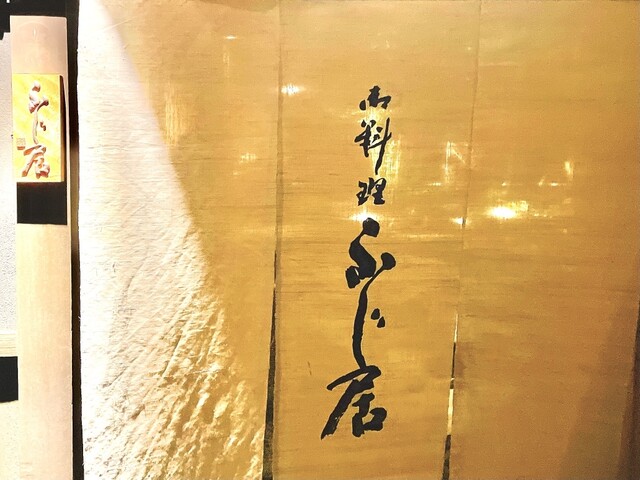 ふじ居
御料理
ふじ居